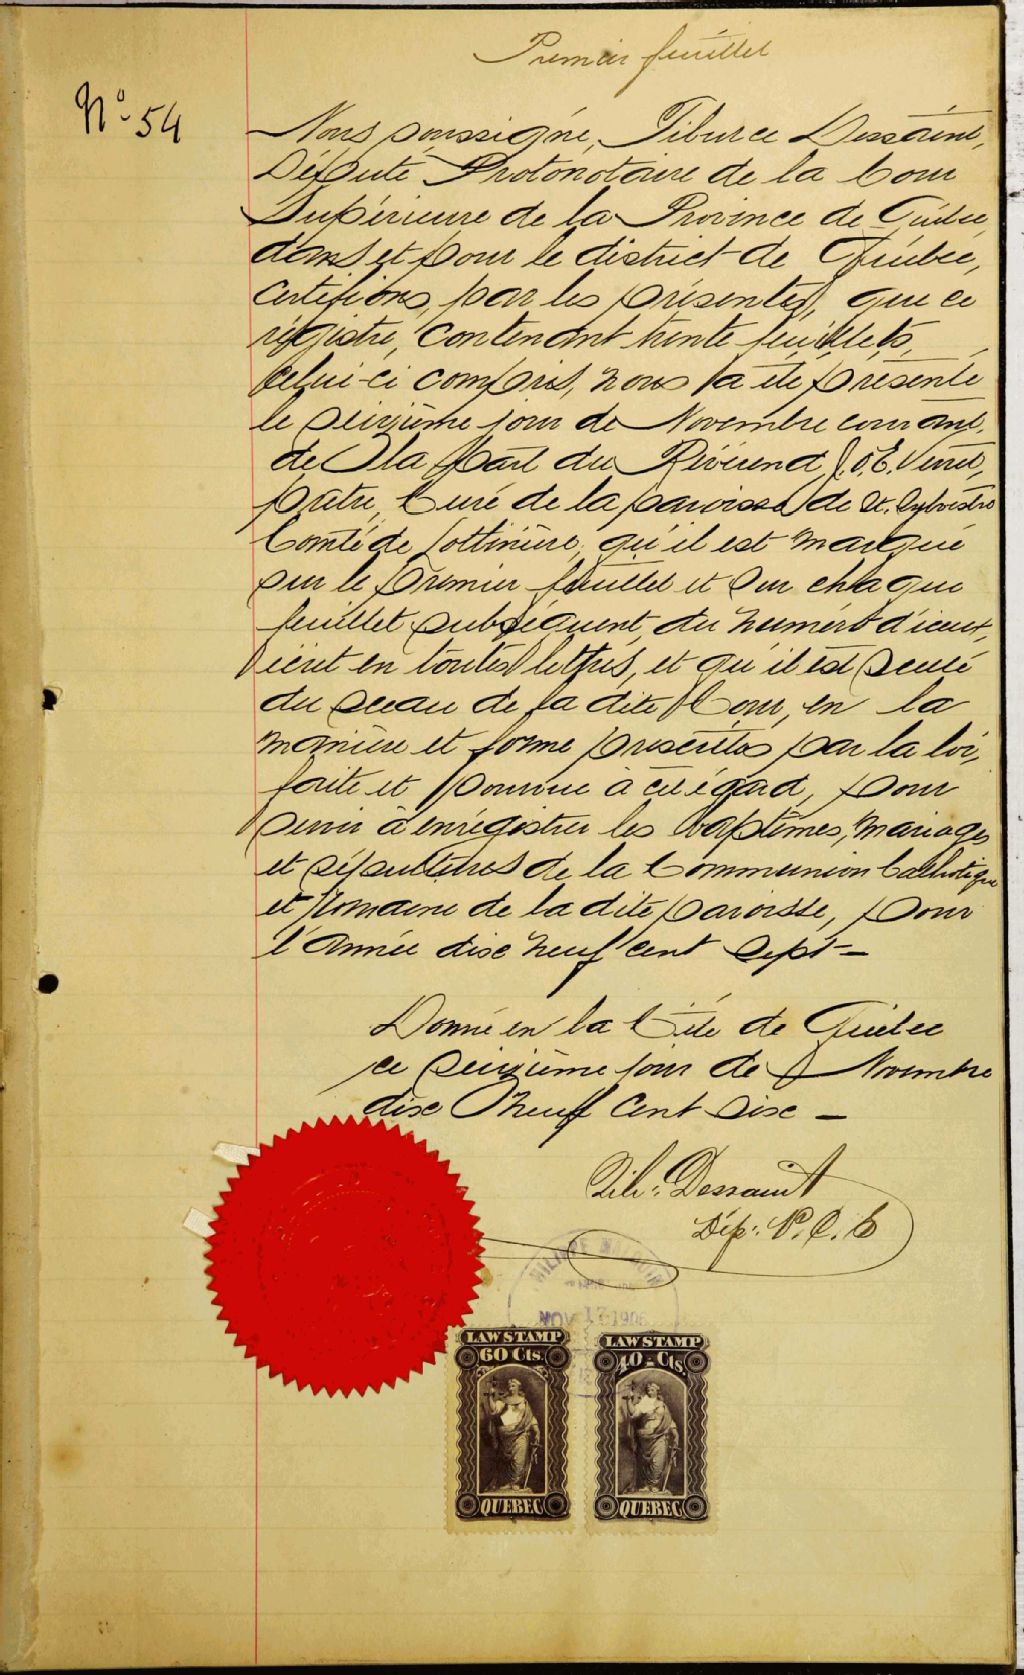 Premier feuillet
No. 54
Nous soussigné, Tiburce Dessaint,
Député Protonotaire de la Cour
Supérieure de la Province de Québec,
dans et pour le district de Québec,
certifions, par les présentes, que ce
régistre, contenant trente feuillets,
celui-ci compris, nous a été présenté
le seizième jour de Novembre courant,
de la part du Révérend J. O. E. Verret,
prêtre, Curé de la paroisse de St. Sylvestre
Comté de Lotbinière, qu'il est marqué
sur le premier feuillet et sur chaque
feuillet subséquent, du numéro d'iceux,
écrit en toutes lettres, et qu'il est scellé
du sceau de la dite Cour, en la
manière et forme prescrites par la loi,
faite et pourvue à cet égard, pour
servir à enrégistrer les baptêmes, mariages
et sépultures de la Communion Catholique
et Romaine de la dite paroisse, pour
l'Année dix neuf cent sept -
Donné en la Cité de Québec
ce seizième jour de Novembre
dix neuf cent six -
Tib: Dessaint
Dép: P. C. S
NOV 17 1906
LAW STAMP LAW STAMP
60 Cts. 40 - Cts.
QUEBEC QUEBEC